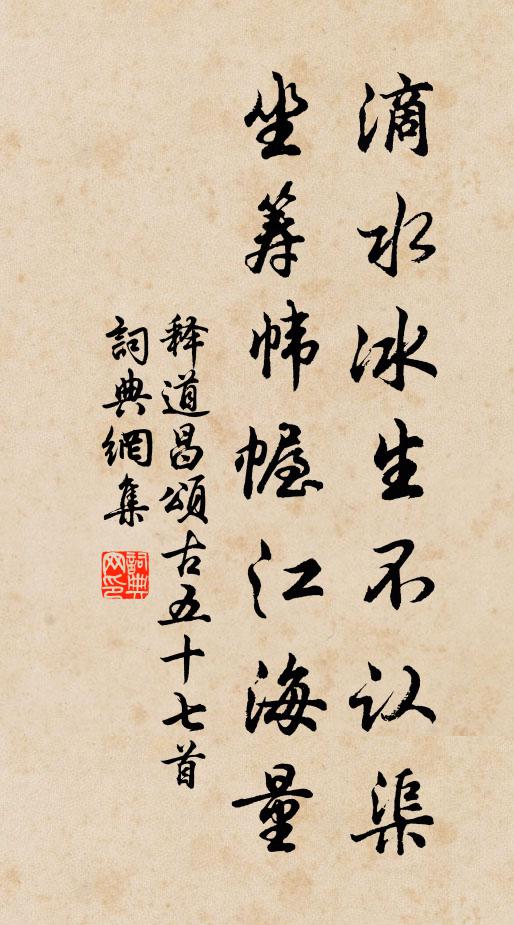 滴水冰生不认渠
坐筹帷幄江海量
释道昌颂古五十七首
詞典網集
詞典網印